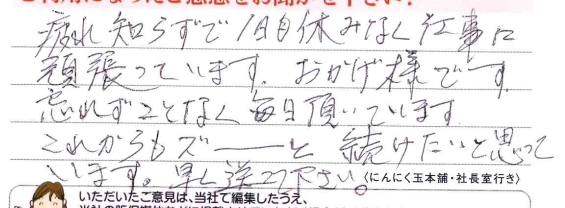 ご利用になったご感想をお聞かせ下さい!
疲れ知らずで1日日休みなく仕事に
頑張っています。おかげ様です。
忘れずことなく毎日頂いています
これからもズーーーっと続けたいと思って
います。早く送って下さい。
〈にんにく玉本舗・社長室行き〉
いただいたご意見は、当社で編集したうえ、